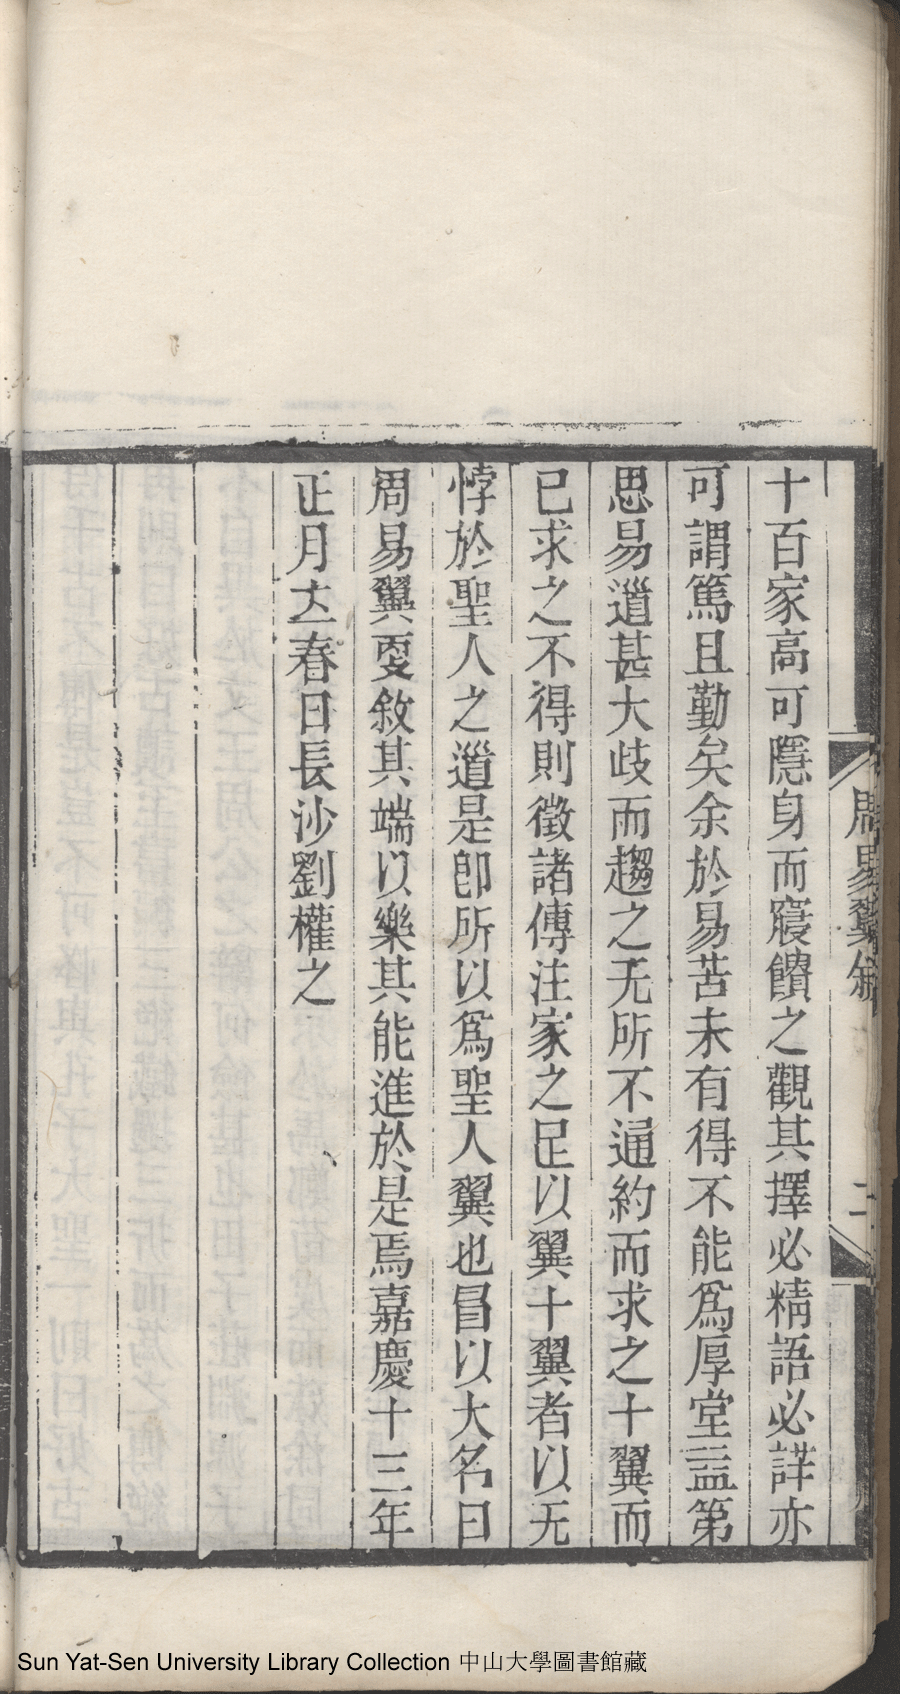 十百家高可隱身而寢饋之觀其擇必精語必詳亦
可謂篤且勤矣余於易苦未有得不能爲厚堂益第
思易道甚大歧而趨之无所不通約而求之十翼而
已求之不得則徵諸傳注家之足以翼十翼者以无
悖於聖人之道是卽所以爲聖人翼也冒以大名曰
周易翼爰敘其端以樂其能進於是焉嘉慶十三年
正月立春日長沙劉權之
周易翼敘
二
Sun Yat-Sen University Library Collection 中山大學圖書館藏